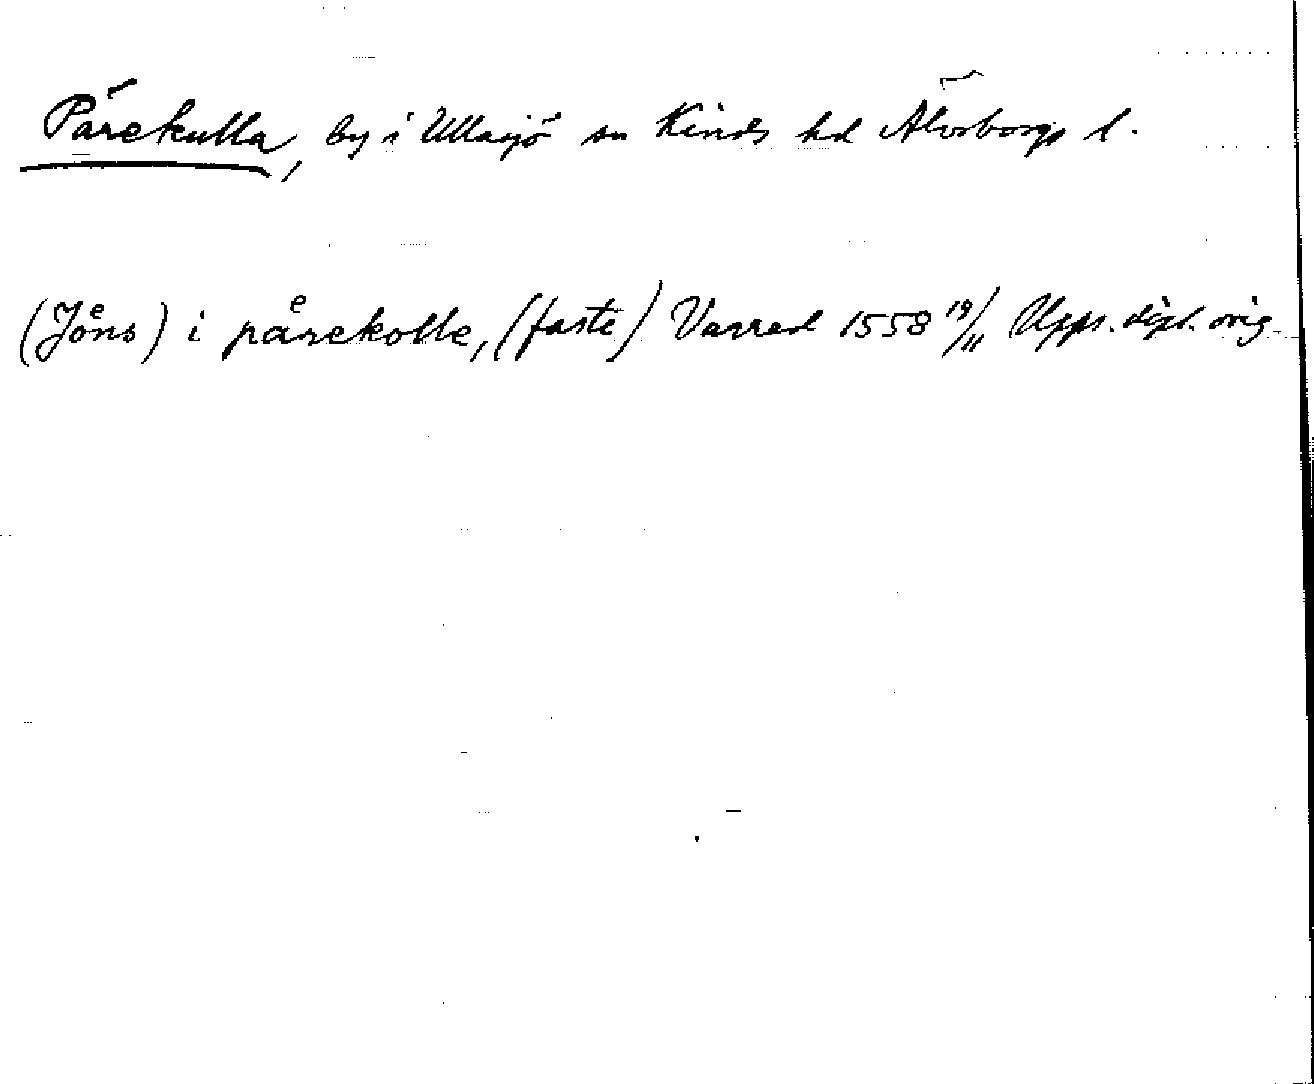 Pärekulla, by i Ullasjö sn Kinds hd Älvsborgs l.
(Jöns) i påͤrekolle, (faste) Varred 1558 19/11 Upps. dipl. orig.